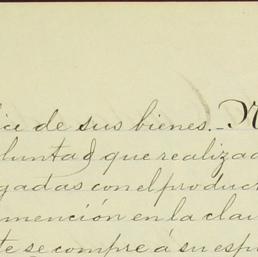 ice de sus bienes._ N
luntad que realizad
gadas con el product
mención en la clau
te se compre á su esp